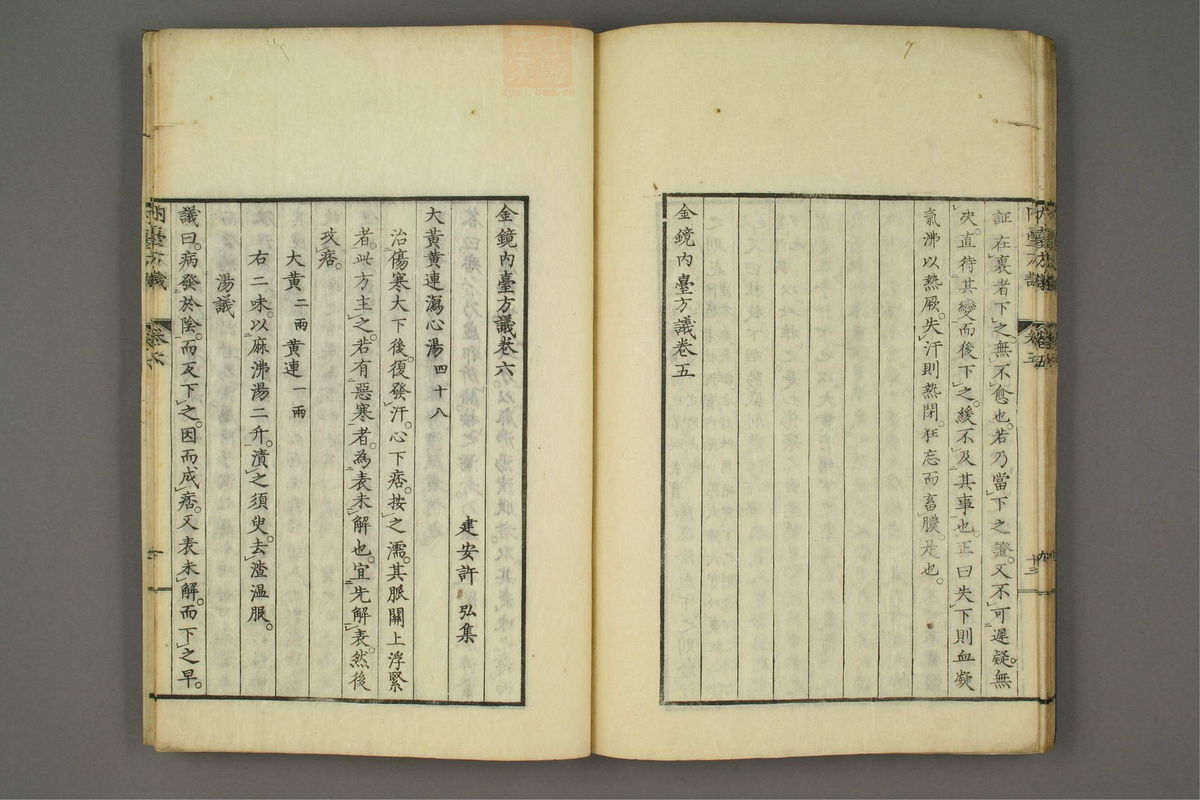 証在裏者下之無不愈也若乃當下之證又不可遲疑無
次直待其變而後下之緩不及其事也正曰失下則血凝
氣沸以熱厥失汗則熱閉狂忘而畜膿是也
金鏡內臺方議卷五
金鏡內臺方議卷六
建安許 弘集
大黃黃連瀉心湯四十八
治傷寒大下後復發汗心下痞按之濡其脈關上浮緊
者此方主之若有惡寒者為表未解也宜先解表然後
攻痞
大黃二兩 黃連一兩
右二味以麻沸湯二升漬之須臾去渣溫服
湯議
議曰病發於陰而反下之因而成痞又表未解而下之早
內臺方議 卷六